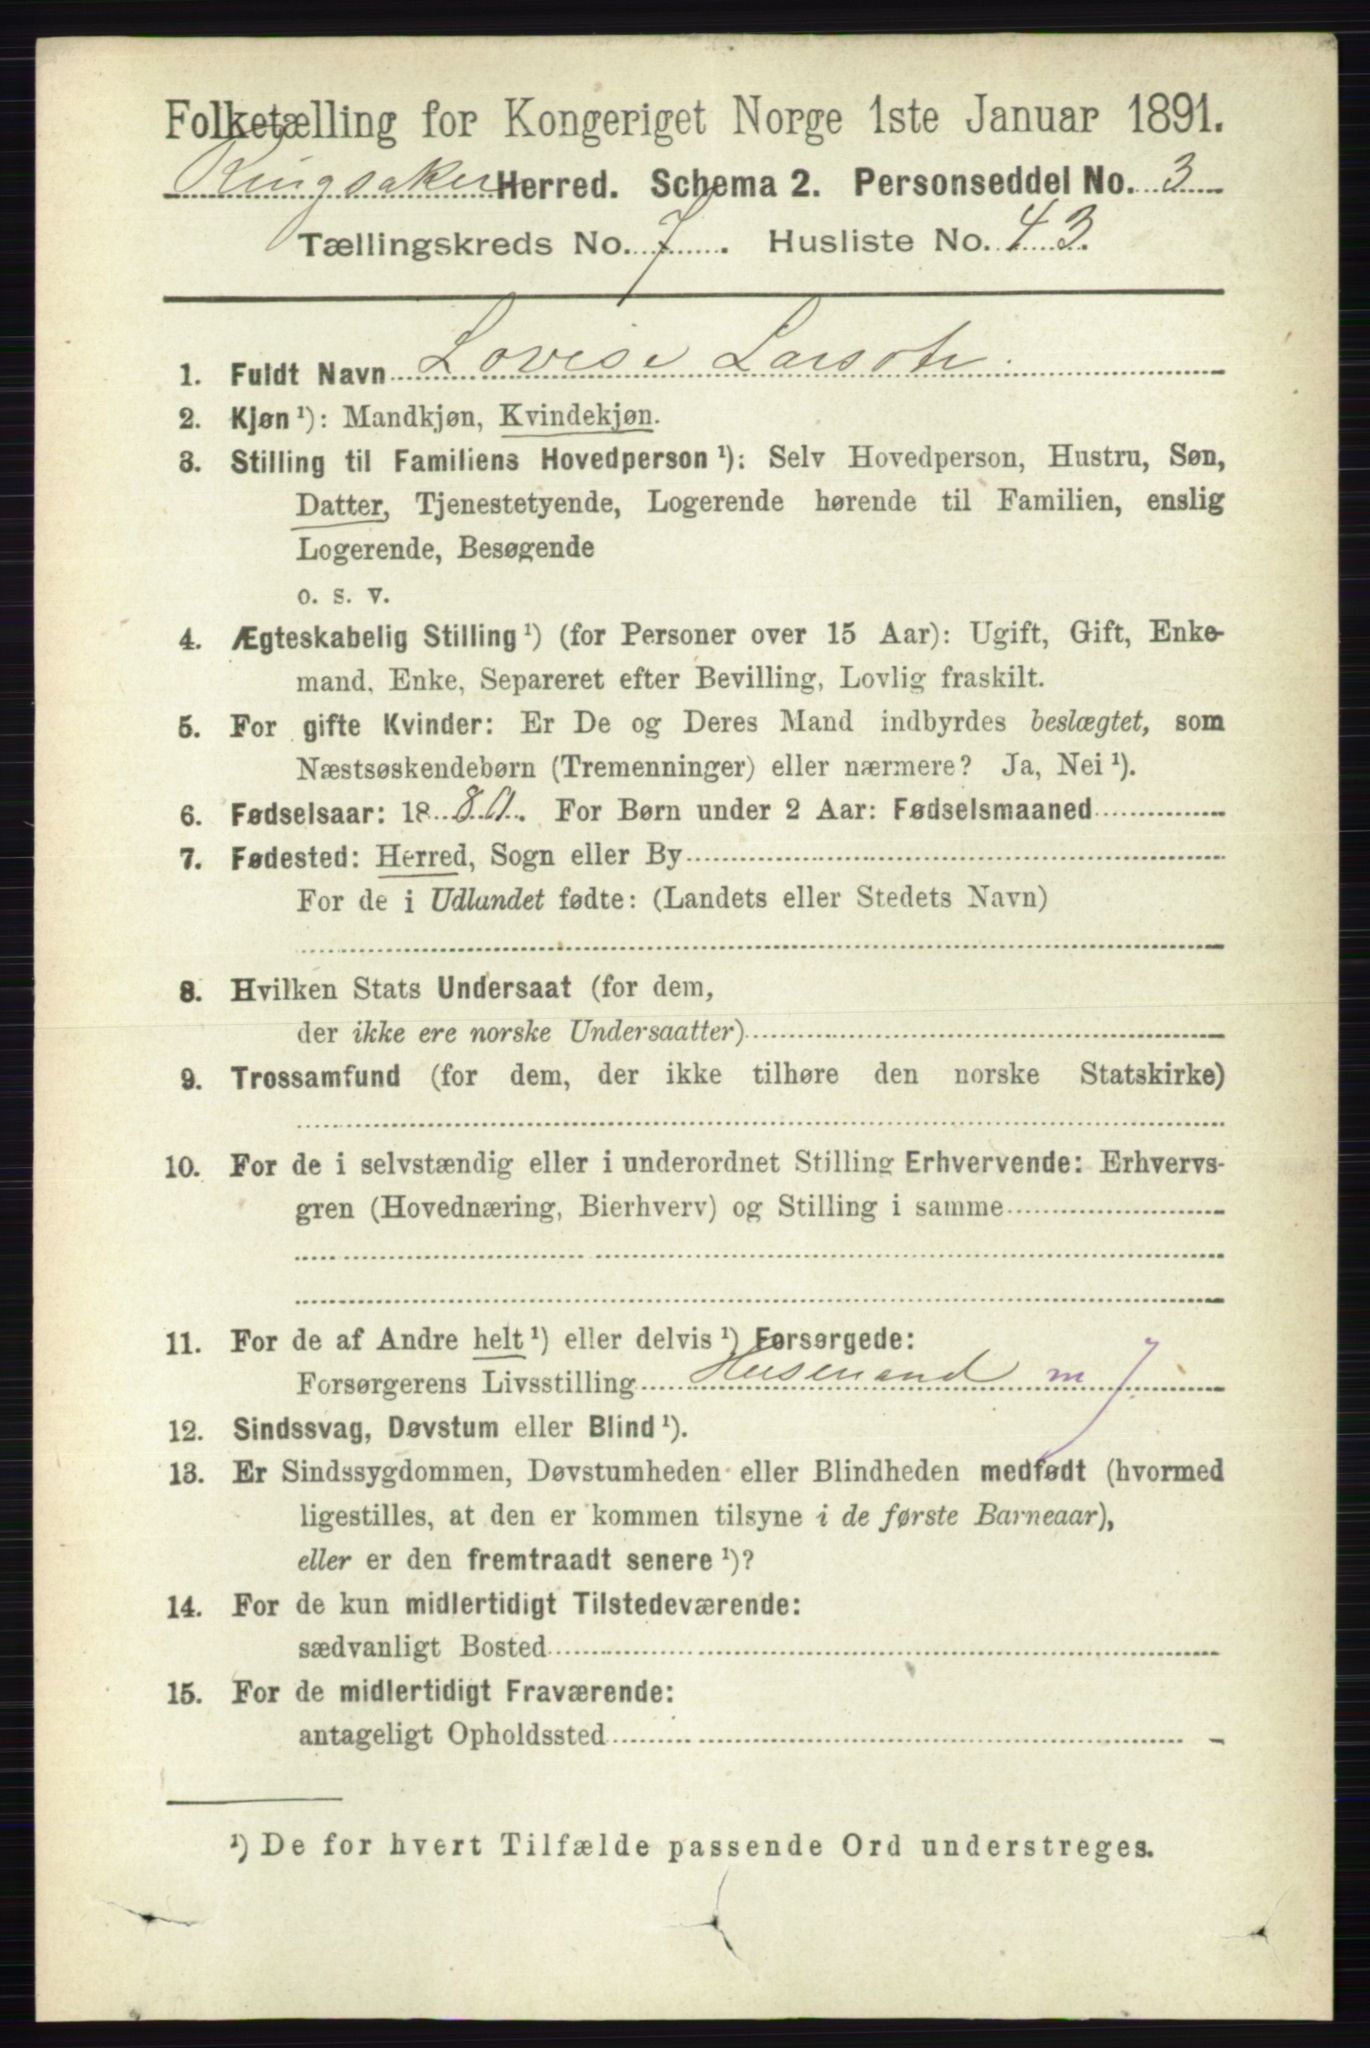 Folketælling for Kongeriget Norge 1ste Januar 1891.
Ringsaker Herred. Schema 2. Personseddel No. 3
Tællingskreds No. 7. Husliste No. 43.
1. Fuldt Navn Lovise Larsdtr.
2. Kjøn ¹): Mandkjøn, Kvindekjøn.
3. Stilling til Familiens Hovedperson ¹): Selv Hovedperson, Hustru, Søn,
Datter, Tjenestetyende, Logerende hørende til Familien, enslig
Logerende, Besøgende
o. s. v.
4. Ægteskabelig Stilling ¹) (for Personer over 15 Aar): Ugift, Gift, Enke-
mand, Enke, Separeret efter Bevilling, Lovlig fraskilt.
5. For gifte Kvinder: Er De og Deres Mand indbyrdes beslægtet, som
Næstsøskendebørn (Tremenninger) eller nærmere? Ja, Nei ¹).
6. Fødselsaar: 18 . For Børn under 2 Aar: Fødselsmaaned
7. Fødested: Herred, Sogn eller By
For de i Udlandet fødte: (Landets eller Stedets Navn)
8. Hvilken Stats Undersaat (for dem,
der ikke ere norske Undersaatter)
9. Trossamfund (for dem, der ikke tilhøre den norske Statskirke)
10. For de i selvstændig eller i underordnet Stilling Erhvervende: Erhvervs-
gren (Hovednæring, Bierhverv) og Stilling i samme
11. For de af Andre helt ¹) eller delvis ¹) Forsørgede:
Forsørgerens Livsstilling Husmand m J.
12. Sindssvag, Døvstum eller Blind ¹).
13. Er Sindssygdommen, Døvstumheden eller Blindheden medfødt (hvormed
ligestilles, at den er kommen tilsyne i de første Barneaar),
eller er den fremtraadt senere ¹)?
14. For de kun midlertidigt Tilstedeværende:
sædvanligt Bosted
15. For de midlertidigt Fraværende:
antageligt Opholdssted
¹) De for hvert Tilfælde passende Ord understreges.